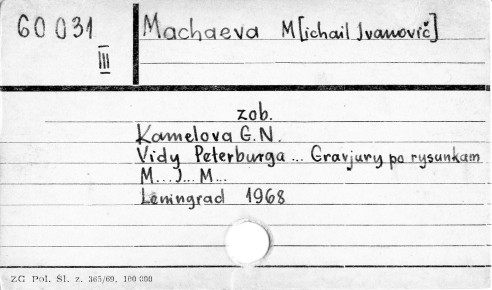 60 031
III
Machaeva M[ichail Ivanovič]
zob.
Kamelova G.N.
Vidy Peterburga ... Gravjury po rysunkam
M... I... M...
Leningrad 1968
ZG Pol. Śl. z. 365/69. 100 000